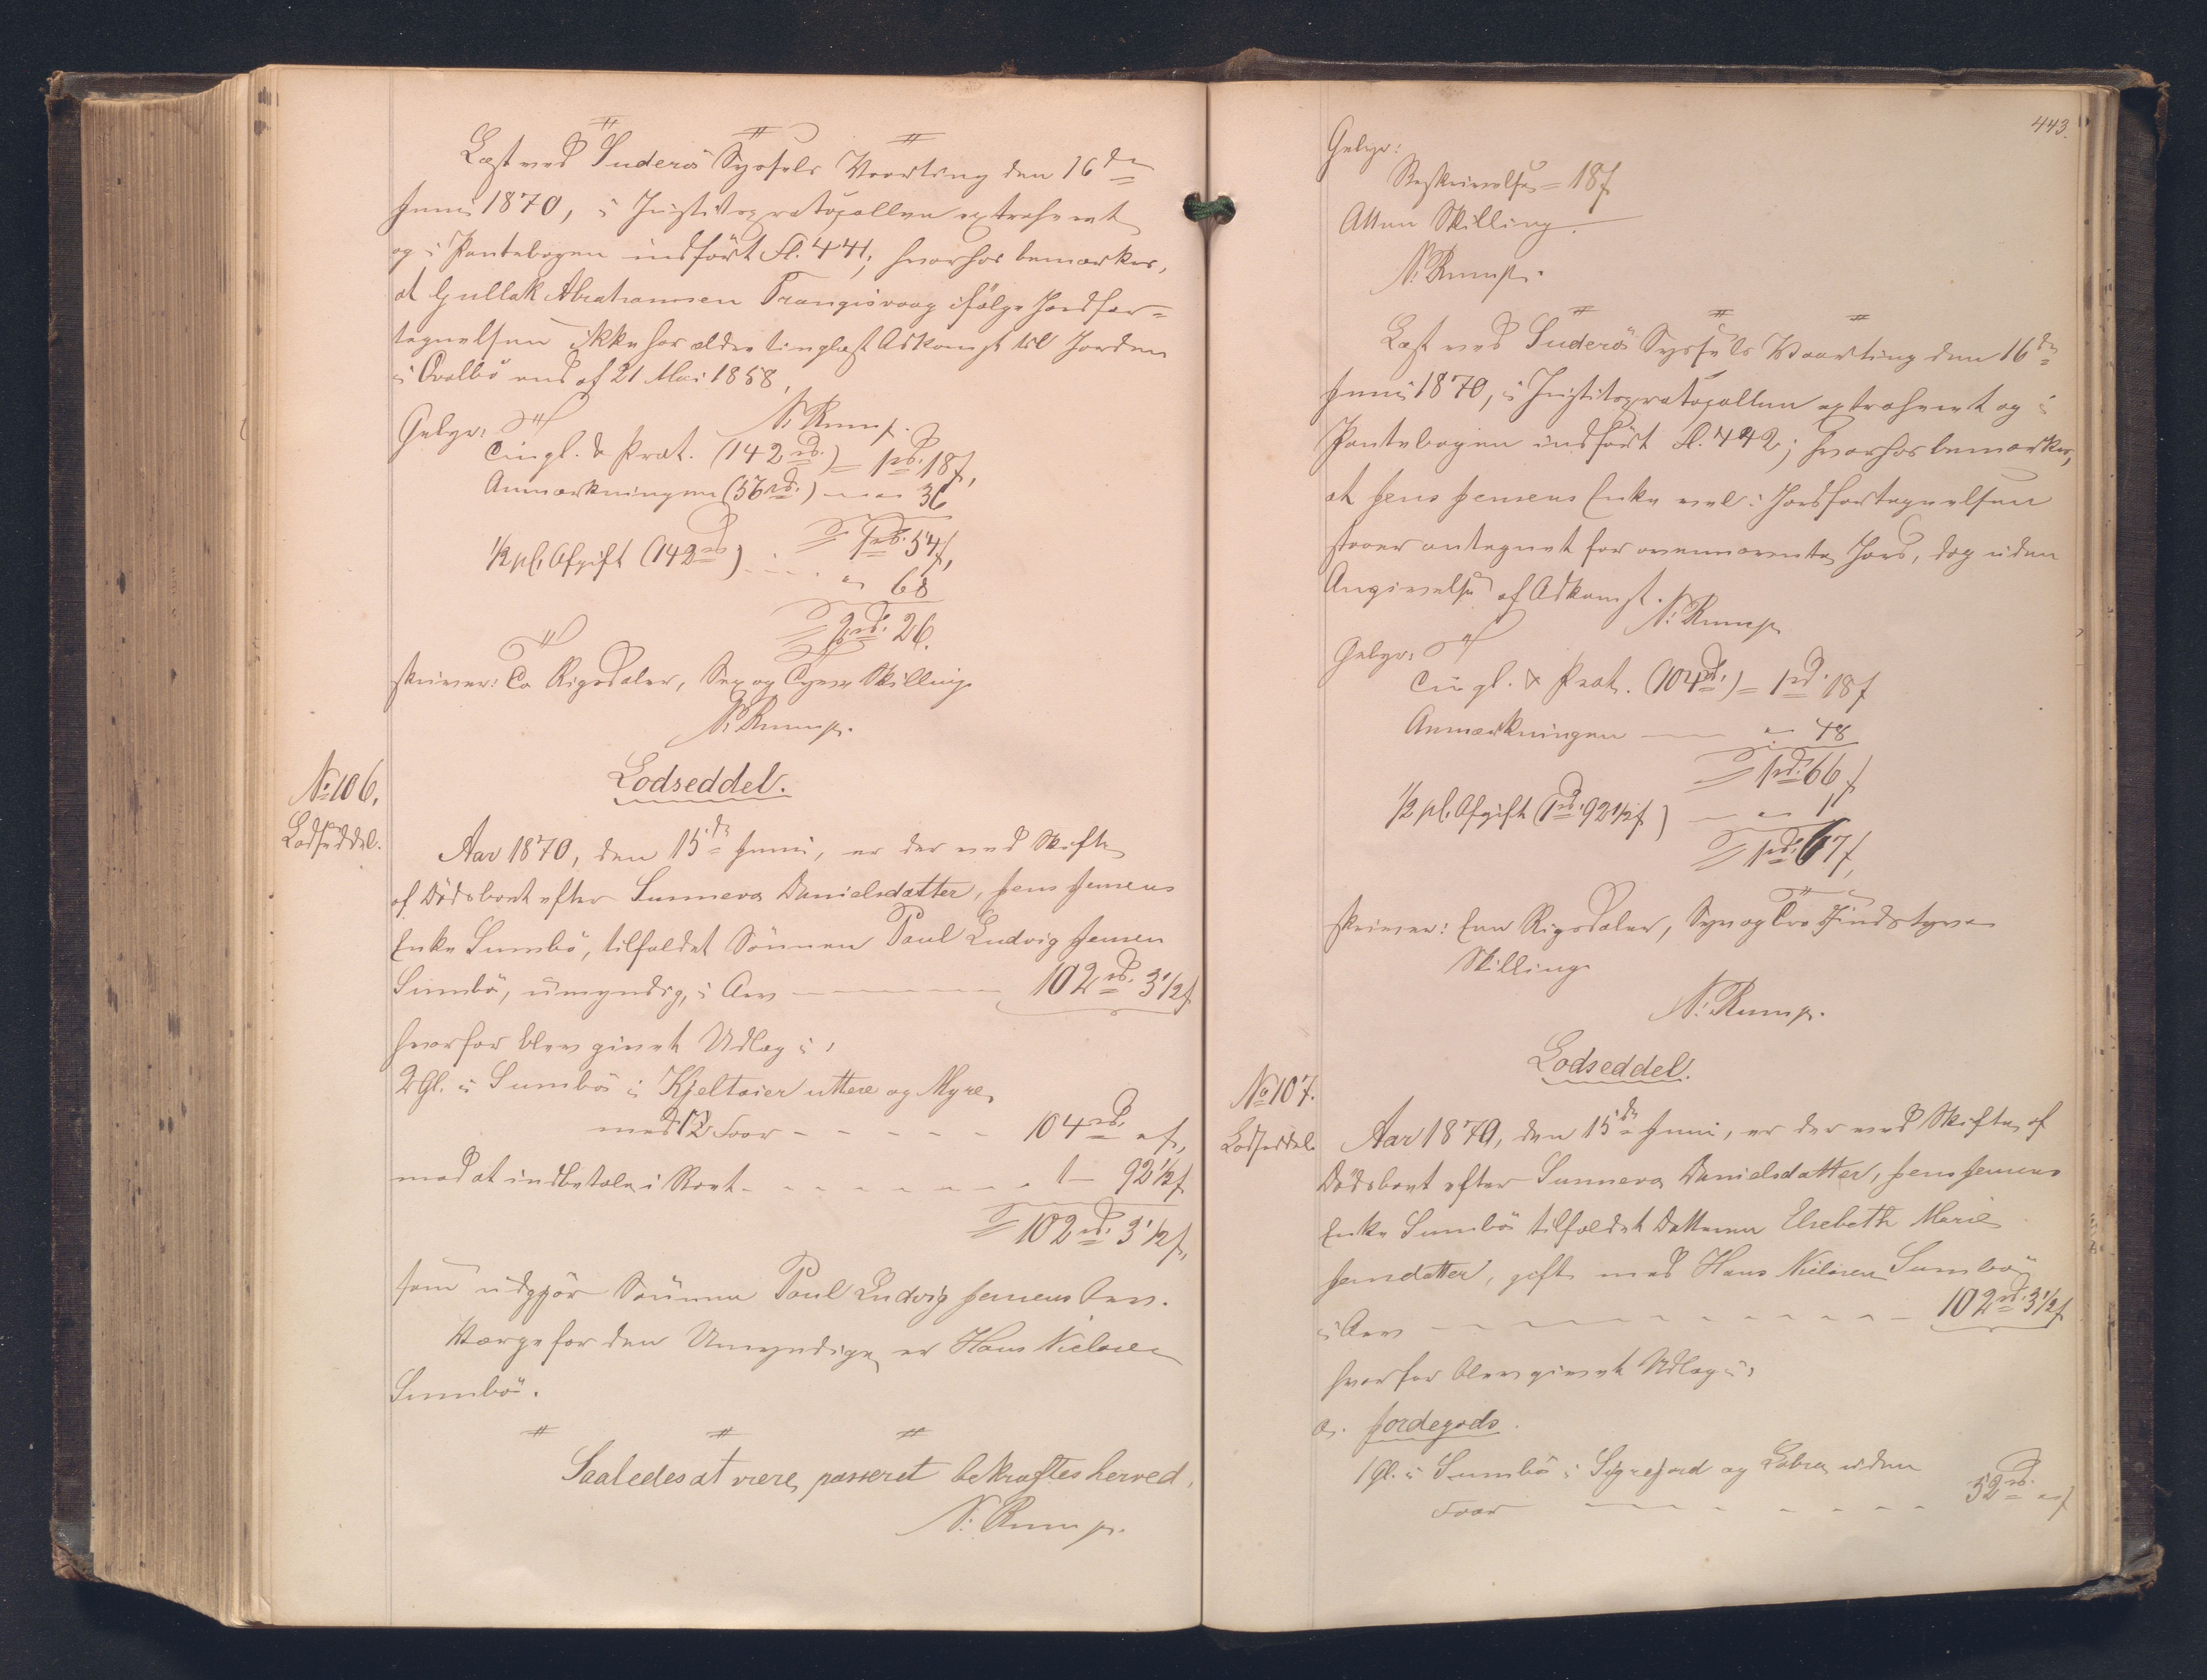 Læst ved Suderø Syssels Vaarting den 16de
Juni 1870, i Justitsprotocollen extraheret
og i Pantebogen indført Fl. 441; hvorhos bemærkes,
at Gullak Abrahamsen Trangisvaag ifølge Jordfor-
tegnelsen ikke har ældre tinglæst Adkomst til Jorden
i Qvalbø end af 21 Mai 1858.
N: Rump.
Gebyr:
Tingl. & Prot. (142 rd.) = 1 rd. 18 s,
Anmærkningen (56 rd.) – " – 36
= 1 rd. 54 s,
1/2 pCt. Afgift (142 rd) - - - " 68
= 2 rd. 26.
skriver: To Rigsdaler, Sex og Tyve Skilling
N: Rump.
No 106.
Lodseddel.
Lodseddel.
Aar 1870, den 15de Juni, er der ved Skifte
af Dødsboet efter Sunneva Danielsdatter, Jens Jensens
Enke Sumbø, tilfaldet Sønnen Poul Ludvig Jensen
Sumbø, umyndig, i Arv - - - 102 rd. 3 1/2 s
hvorfor blev givet Udlæg i:
2 Gl. i Sumbø i Kjeltoier uttere og Myre,
med 12 Foer - - - - - 104 rd. " s,
mod at indbetale i Boet - - - - - - 1 – 92 1/2 s
= 102 rd. 3 1/2 s,
som udgjør Sønnen Poul Ludvig Jensens Arv.
Værge for den Umyndige er Hans Nielsen
Sumbø.
Saaledes at være passeret bekræftes herved.
N: Rump.
443.
Gebyr:
Beskrivelse = 18 s
Atten Skilling.
N: Rump.
Læst ved Suderø Syssels Vaarting den 16de
Juni 1870, i Justitsprotocollen extraheret og i
Pantebogen indført Fl. 442; hvorhos bemærkes,
at Jens Jensens Enke vel i Jordfortegnelsen
staaer antegnet for ovennævnte Jord, dog uden
Angivelse af Adkomst.
N: Rump
Gebyr:
Tingl. & Prot. (104 rd.) = 1 rd. 18 s
Anmærkningen – " 48
= 1 rd. 66 s
1/2 pCt. Afgift (1 rd. 92 1/2 s) – " 1
= 1 rd. 67 s,
skriver: Een Rigsdaler, Syv og Tredsindstyve
Skilling
N: Rump.
No 107.
Lodseddel.
Lodseddel.
Aar 1870, den 15de Juni, er der ved Skifte af
Dødsboet efter Sunneva Danielsdatter, Jens Jensens
Enke Sumbø tilfaldet Datteren Elsebeth Marie
Jensdatter, gift med Hans Nielsen Sumbø
i Arv - - - - - - - - - 102 rd. 3 1/2 s
hvorfor blev givet Udlæg i:
a. Jordegods.
1 Gl. i Sumbø i Sigrejord og Løbra uden
Foer - - - - - - 52 rd. " s